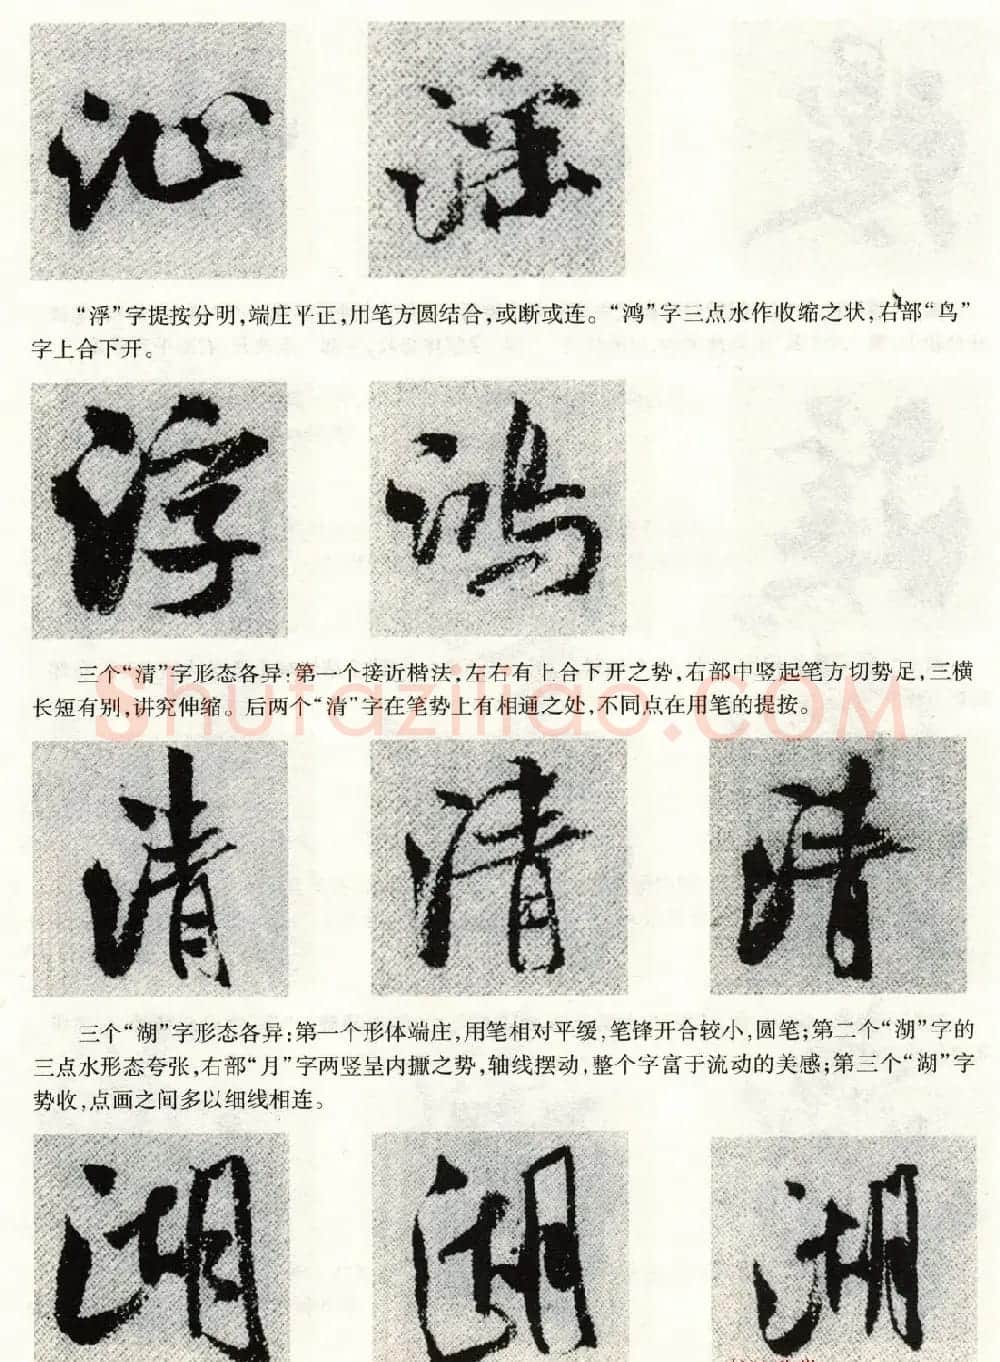 沁
“浮”字提按分明,端庄平正,用笔方圆结合,或断或连。“鸿”字三点水作收缩之状,右部“鸟”
字上合下开。
浮 鸿
三个“清”字形态各异:第一个接近楷法,左右有上合下开之势,右部中竖起笔方切势足,三横
长短有别,讲究伸缩。后两个“清”字在笔势上有相通之处,不同点在用笔的提按。
shufaziliao.com
清 清 清
三个“湖”字形态各异:第一个形体端庄,用笔相对平缓,笔锋开合较小,圆笔;第二个“湖”字的
三点水形态夸张,右部“月”字两竖呈内擫之势,轴线摆动,整个字富于流动的美感;第三个“湖”字
势收,点画之间多以细线相连。
湖 湖 湖